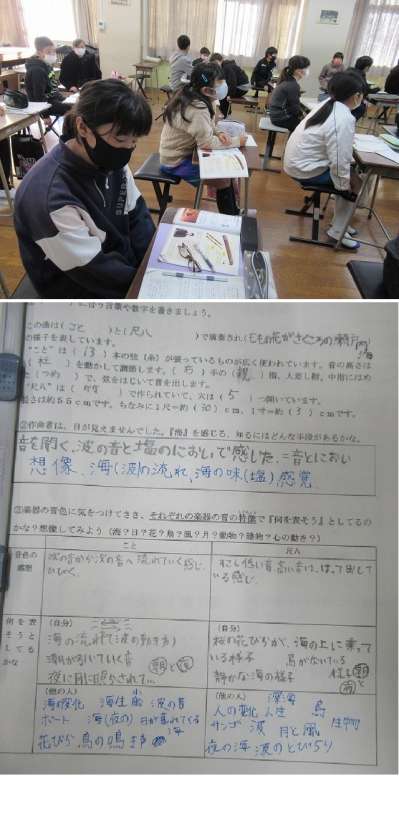 SUPER
に合う言葉や数字を書きましょう。
この曲は（こと）と（尺八）で演奏され（ももの花がさくころの瀬戸内海
の様子を表しています。
"こと"は（13）本の弦（糸）が張っているものが広く使われています。音の高さは
（柱）を動かして調節します。（右）手の（親）指、人差し指、中指にはめ
（つめ）で、弦をはじいて音を出します。
尺八"は（竹）で作られていて、穴は（5）つ開いています。
長さは約55cmです。ちなみに1尺＝約（30）cm、1寸＝約（3）cmです。
②作曲者は、目が見えませんでした。『海』を感じる、知るにはどんな手段があるかな。
音を聞く、波の音と塩のにおいで感じた＝音とにおい
想像、海（波）の流れ、海の味（塩）感覚
③楽器の音色に気をつけてきき、それぞれの楽器の音の特徴で『何を表そう』としてるの
かな？想像してみよう（海？日？花？鳥？風？月？動物？建物？心の動き？）
こと
尺八
音色の
感想
波の音から次の音へ流れていく感じ
ひびく。
すこし低い音高い音は、
している感じ。
何を表
そうと
してる
かな
（自分）
海の流れ（波の動き方）
潮がひいていく音
朝と夜
（自分）
桜の花びらが、海の上に乗って
いる様子 鳥がないている
静かな海の様子
（他の人）
海の変化 海 生 船 波の音
ボート 海（夜の）日が暮れてくる
花びら 鳥の鳴き声
（他の人） 深海
人の変化 人生 鳥
サンゴ 波 月と風 生物
夜の海